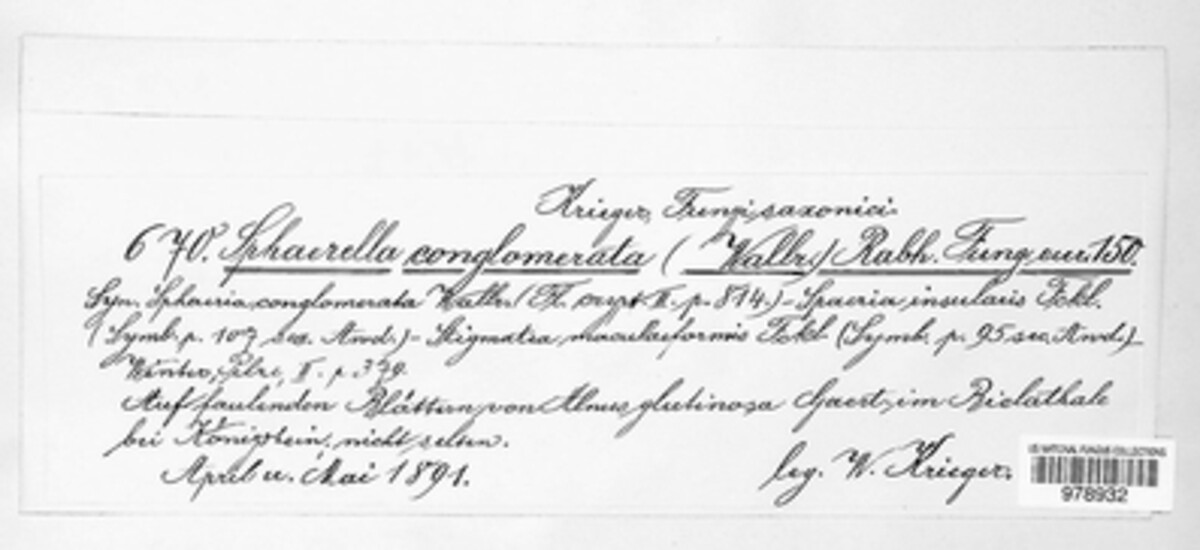 Krieger, Fungi saxonici.
670. Sphaerella conglomerata (Wallr.) Rabh. Fung. eur. 150.
Syn. Sphaeria conglomerata Wallr. (Fl. crypt. II. p. 814.) - Spaeria insularis Fckl.
(Symb. p. 107 sec. Awd.) - Stigmatea maculaeformis Fckl. (Symb. p. 95 sec. Awd.) -
Winter, Pilze, II. p. 379.
Auf faulenden Blättern von Alnus glutinosa Gaert., im Bielathale
bei Königstein, nicht selten.
April u. Mai 1891.
leg. W. Krieger.
US NATIONAL FUNGUS COLLECTIONS
978932